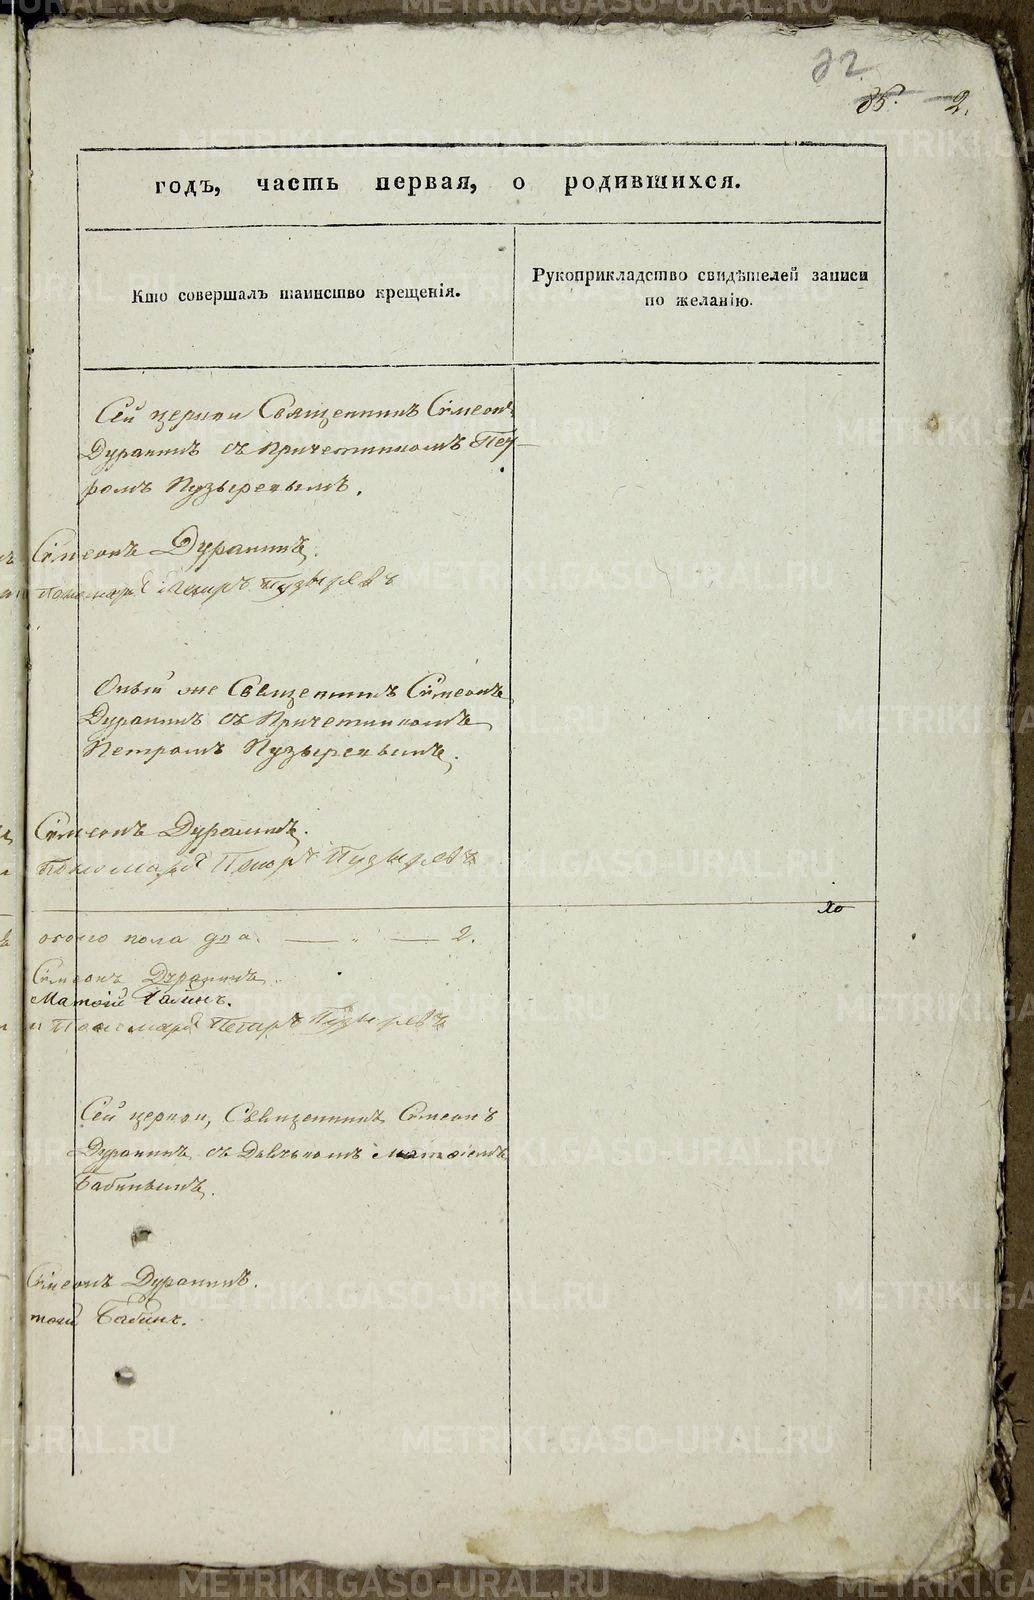 32
35. 2.
годъ, часть первая, о родившихся.
Кто совершалъ таинство крещенія.
Рукоприкладство свидѣтелей записи
по желанію.
Сей церкви Священникъ Симеонъ
Дуракинъ съ Причетникомъ Пет
ромъ Пузыревымъ.
Симеонъ Дуракинъ.
Пономарь Петръ Пузыревъ
Оный же Священникъ Симеонъ
Дуракинъ съ Причетникомъ
Петромъ Пузыревымъ.
Симеонъ Дуракинъ.
Пономарь Петръ Пузыревъ
пола два. — „ — 2.
Симеонъ Дуракинъ.
Матөій Бабинъ.
и Пономарь Петръ Пузыревъ
Сей церкви, Священникъ Симеонъ
Дуракинъ съ Дьячкомъ Матөіемъ
Бабинымъ.
Симеонъ Дуракинъ.
Бабинъ.
METRIKI.GASO-URAL.RU